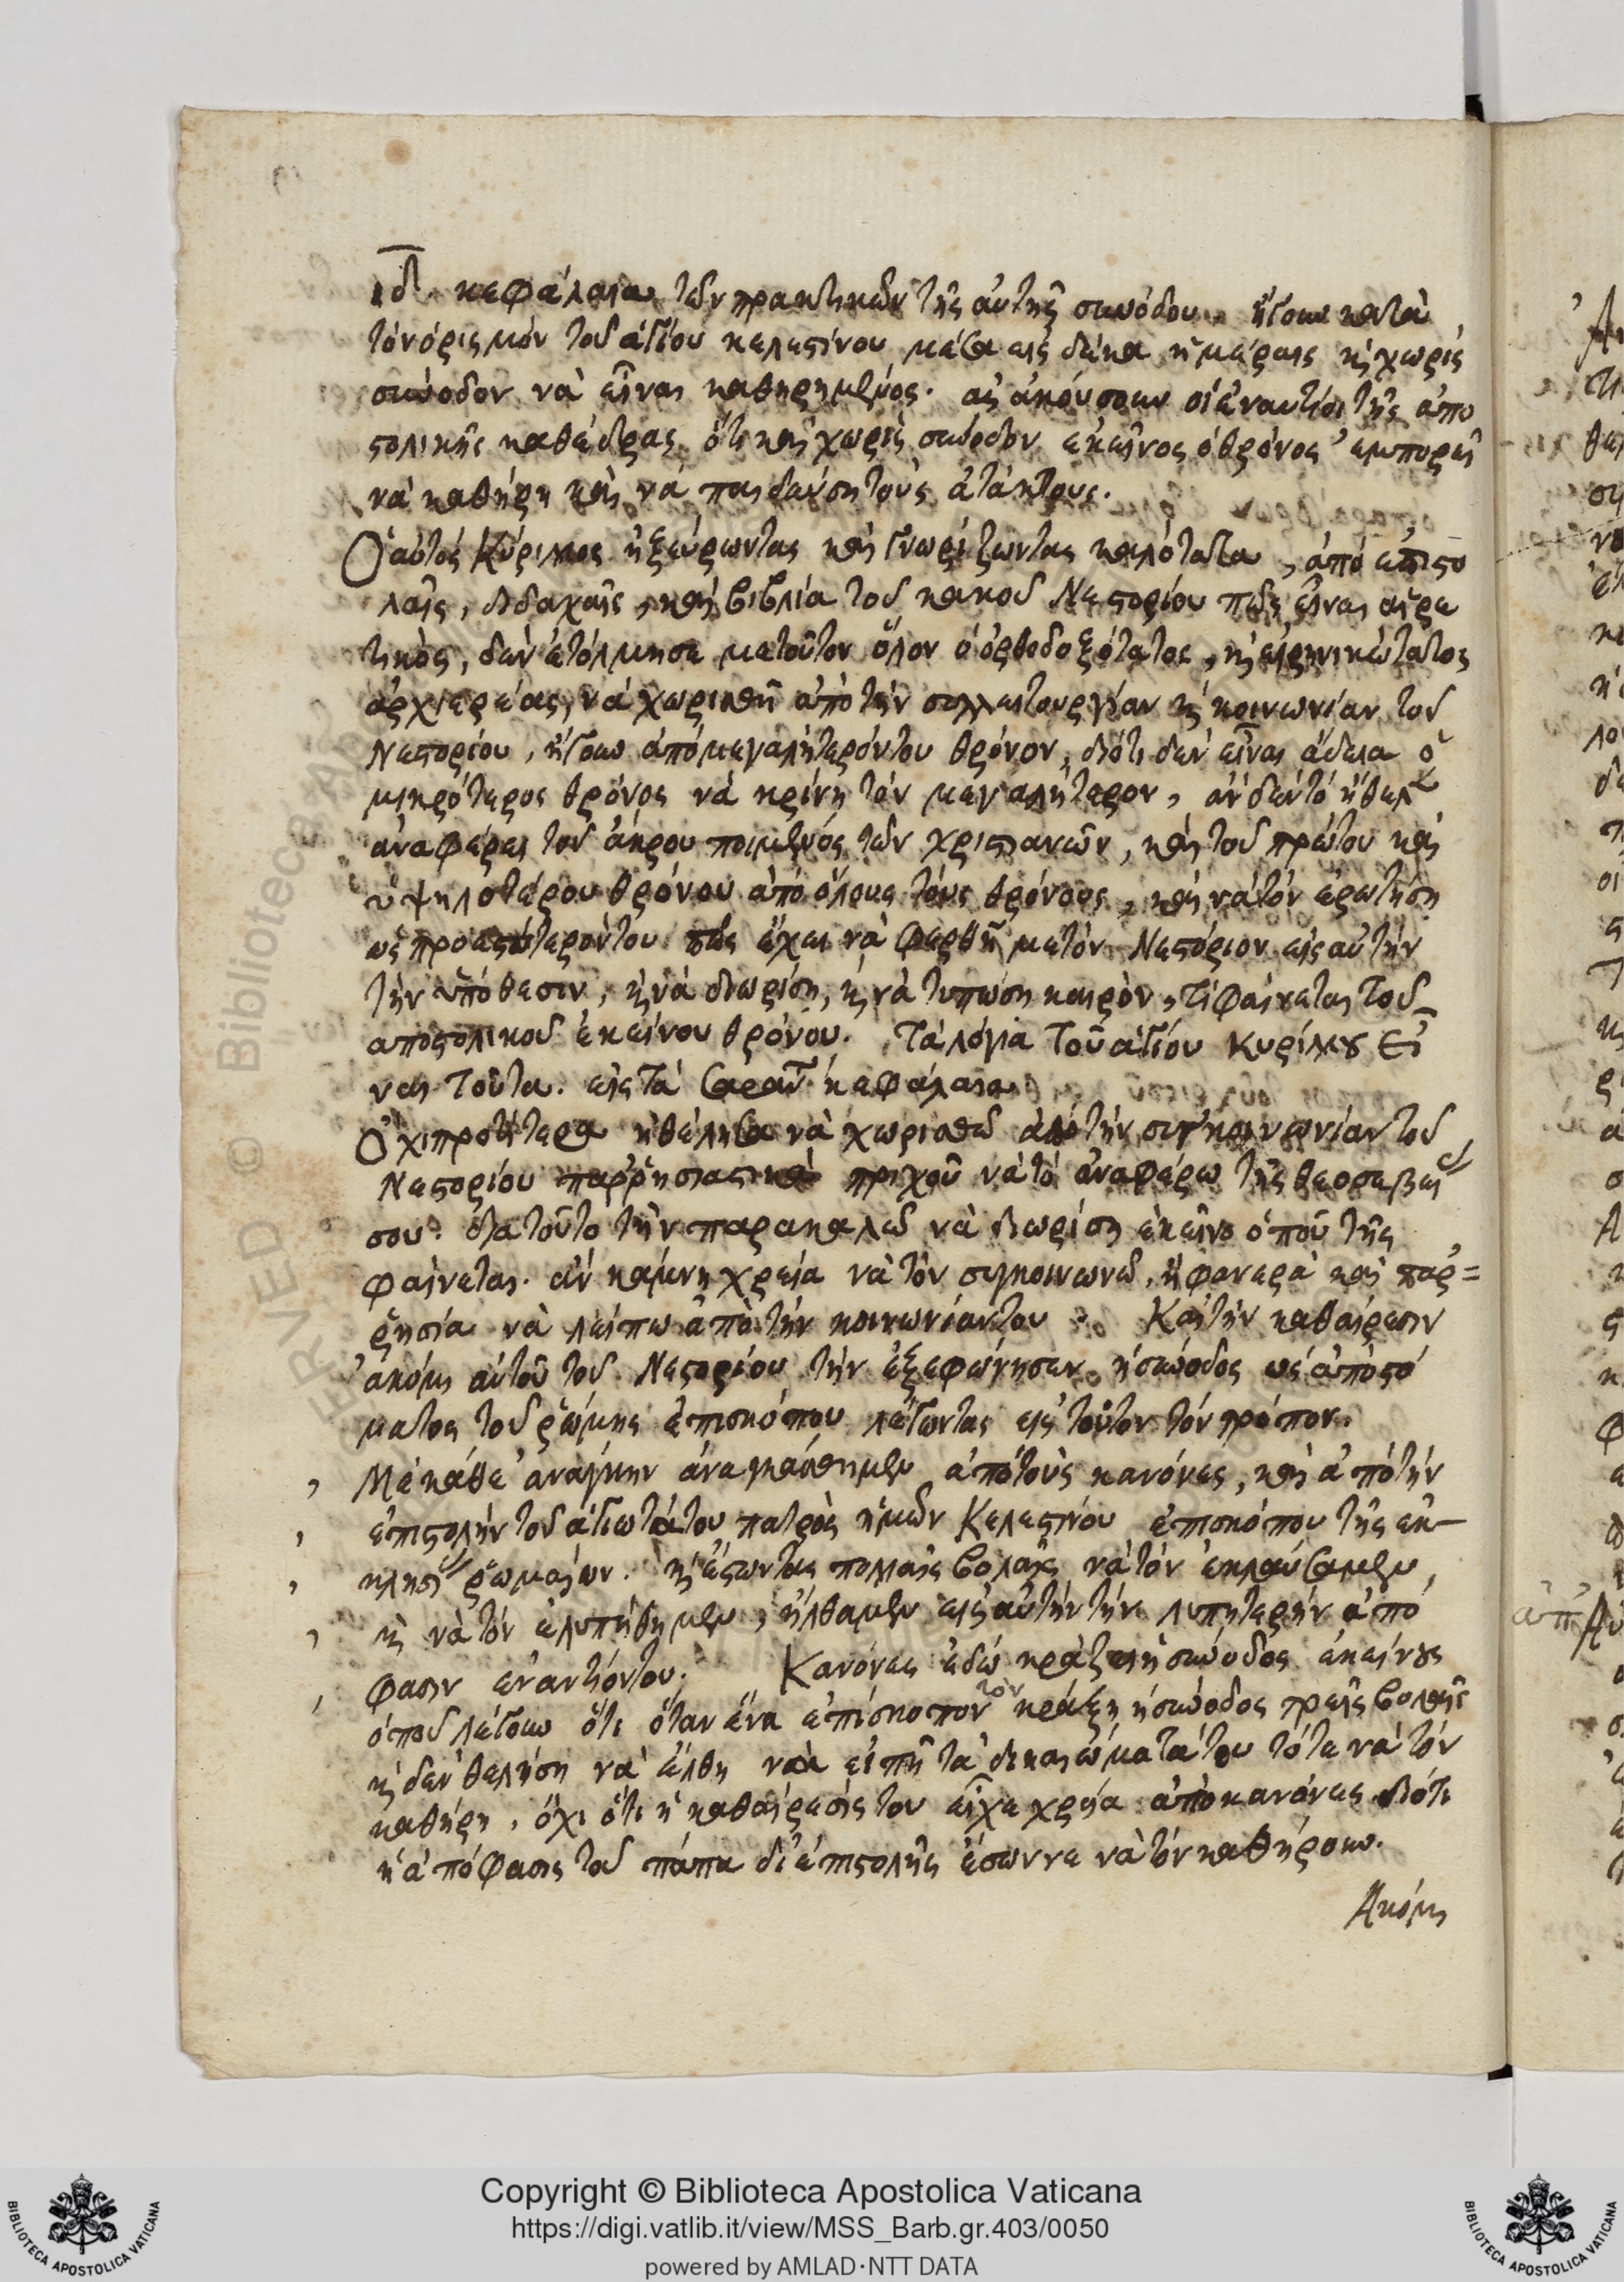 ιδ κεφάλαια τῶν πρακτικῶν τῆς αὐτῆς συνόδου ἤγουν κατὰ
τὸν ὁρισμόν τοῦ ἁγίου κελεστίνου μέσα εἰς δέκα ἡμέραις κ̀ χωρίς
σύνοδον νὰ εἶναι καθηρημένος. ἂς ἀκούσουν οἱ ἐναντίοι τῆς ἀπο
στολικῆς καθέδρας ὅτι καὶ χωρὶς σύνοδον ἐκεῖνος ὁ θρόνος ἐμπορεῖ
νὰ καθήρῃ καὶ νά παιδεύσῃ τοὺς ἀτάκτους.
Ὁ αὐτός Κύριλλος ἠξεύρωντας καὶ γνωρίζωντας καλότατα, ἀπό ἐπιστο
λαῖς, διδαχαῖς, καὶ βιβλία τοῦ κακοῦ Νεστορίου πῶς εἶναι αἱρε
τικὸς, δὲν ἐτόλμησε μετοῦτον ὅλον ὁ ὀρθοδοξότατος, κ̀ εἰρηνικώτατος
ἀρχιερέας, νά χωρισθῇ ἀπὸ τὴν συλλειτουργίαν κ̀ κοινωνίαν τοῦ
Νεστορίου, ἤγουν ἀπό μεγαλήτερόν του θρόνον, διότι δὲν εἶναι ἄδεια ὁ
μικρότερος θρόνος νὰ κρίνῃ τὸν μεγαλήτερον, ἂν δὲν τὸ ἤθελε
ἀναφέρει τοῦ ἄκρου ποιμένος τῶν χριστιανῶν, καὶ τοῦ πρώτου καὶ
ὑψηλοτέρου θρόνου ἀπό ὅλους τοὺς θρόνους, καὶ νὰ τὸν ἐρωτήσῃ
ὡς προεστότερόν του πῶς ἔχει νὰ φερθῇ μετόν Νεστόριον εἰς αὐτὴν
τὴν ὑπόθεσιν, κ̀ νὰ διωρίσῃ, κ̀ νὰ τυπώσῃ καιρὸν, τί φαίνεται τοῦ
αποστολικοῦ ἐκείνου θρόνου. Τὰ λόγια Τοῦ ἁγίου Κυρίλλου Εἶ
ναι Τοῦτα. εἰς τὰ κεφάλαια
Ὄχι προτήτερα ἠθέλησα νὰ χωρισθῶ ἀπό τὴν συγκοινωνίαν τοῦ
Νεστορίου παῤῥησιαστικὰ πριχοῦ νὰ τὸ ἀναφέρω τῆς θεοσεβείας
σου. δια τοῦτο τὴν παρακαλῶ νὰ διωρίσῃ ἐκεῖνο ὁποῦ τῆς
φαίνεται. ἂν κάμνῃ χρεία νὰ τὸν συγκοινωνῶ, ἢ φανερὰ καὶ παρ=
ῥησία νὰ λείπω ἀπὸ τὴν κοινωνίαν του. Καὶ τὴν καθαίρεσιν
ἀκόμη αὐτοῦ τοῦ Νεστορίου τὴν ἐξεφώνησεν ἡ σύνοδος ὡς ἀπὸ στό
ματος τοῦ ῥώμης ἐπισκόπου λέγωντας εἰς τοῦτον τόν τρόπον.
, Μὲ κάθε ἀνάγκην ἀναγκάσθημεν ἀπό τοὺς κανόνες, καὶ ἀπό τήν
, ἐπιστολήν τοῦ ἁγιωτάτου πατρὸς ἡμῶν Κελεστίνου ἐπισκόπου τῆς ἐκ-
, κλησίας ῥωμαίων. κ̀ ἔσωντας πολλαῖς βολαῖς νὰ τόν ἐκλαύσαμεν,
, κ̀ νὰ τόν ἐλυπήθημεν, ἤλθαμεν εἰς αὐτὴν τήν λυπητερήν ἀπό
, φασιν ἐναντίον του. Κανόνες ἐδώ κράζει ἡ σύνοδος ἐκείνους
ὁποῦ λέγουν ὅτι ὅταν ἕνα ἐπίσκοπον τὸν κράξῃ ἡ σύνοδος τρεῖς βολαῖς
κ̀ δεν θελήσῃ νὰ ἔλθῃ νὰ εἰπῇ τὰ δικαιώματά του τότε νὰ τόν
καθήρῃ, ὄχι ὅτι ἡ καθαίρεσίς του εἶχε χρεία ἀπὸ κανόνες διότι
ἡ ἀπόφασις τοῦ πάπα δι' ἐπιστολῆς ἔσωννε νὰ τόν καθήρουν.
Ἀκόμη
Copyright © Biblioteca Apostolica Vaticana
https://digi.vatlib.it/view/MSS_Barb.gr.403/0050
powered by AMLAD·NTT DATA